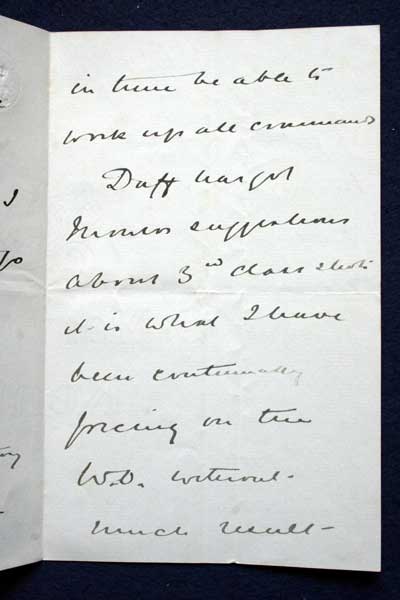 in time be able to
work up all commands
Duff has got
Monros suggestions
about 3rd class shots
it is what I have
been continually
forcing on the
W.D. without
much result -